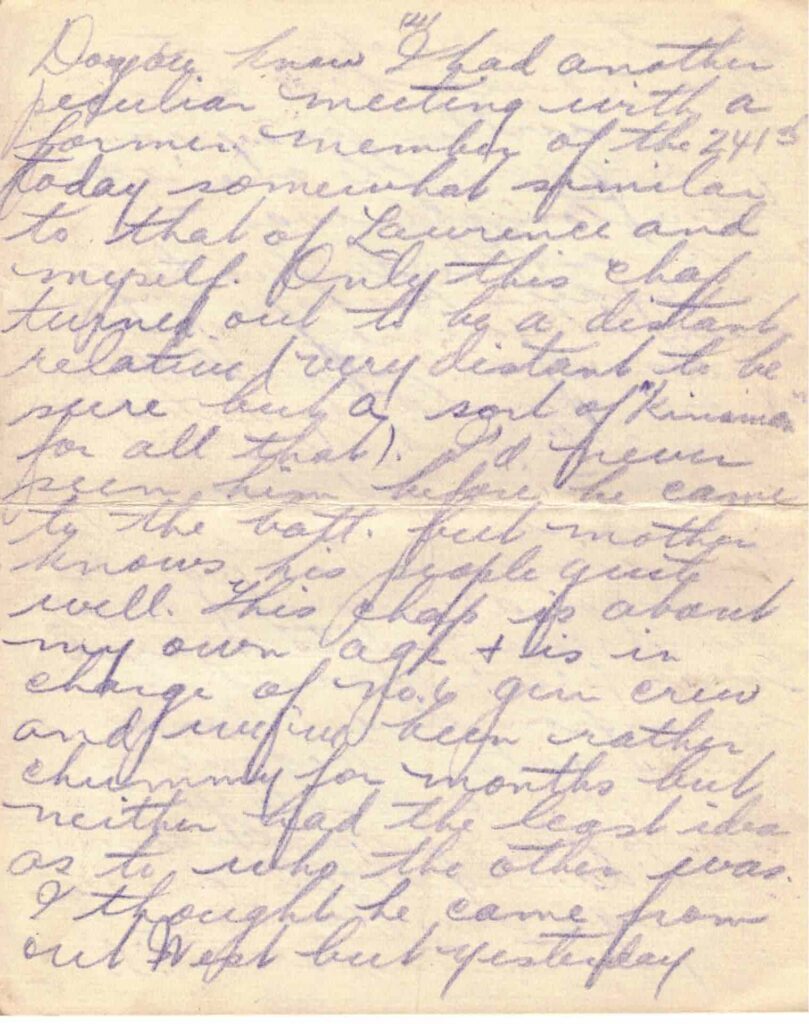 (2)
Do you know I had another
peculiar meeting with a
former member of the 241st
today somewhat similar
to that of Lawrence and
myself. Only this chap
turned out to be a distant
relative (very distant to be
sure but a sort of "Kinsman"
for all that). I'd never
seen him before he came
to the batt. but mother
knows his people quite
well. This chap is about
my own age & is in
charge of no. 6 gun crew
and we've been rather
chummy for months but
neither had the least idea
as to who the other was.
I thought he came from
out West but yesterday